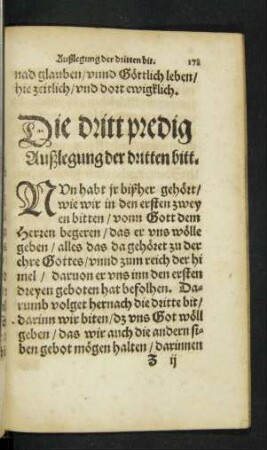 Außlegung der dritten bit. 178
nad glauben / vnnd Göttlich leben /
hie zeitlich / vnd dort ewigklich.
Die dritt predig
Außlegung der dritten bitt.
NVn habt jr bißher gehört /
wie wir in den ersten zwey
en bitten / vonn Gott dem
Herren begeren / das er vns wölle
geben / alles das da gehöret zu der
ehre Gottes / vnnd zum reich der hi
mel / daruon er vns inn den ersten
dreyen geboten hat befolhen. Da-
rumb volget hernach die dritte bit /
darinn wir biten / dz vns Got wöll
geben / das wir auch die andern si-
ben gebot mögen halten / darinnen
Z ij